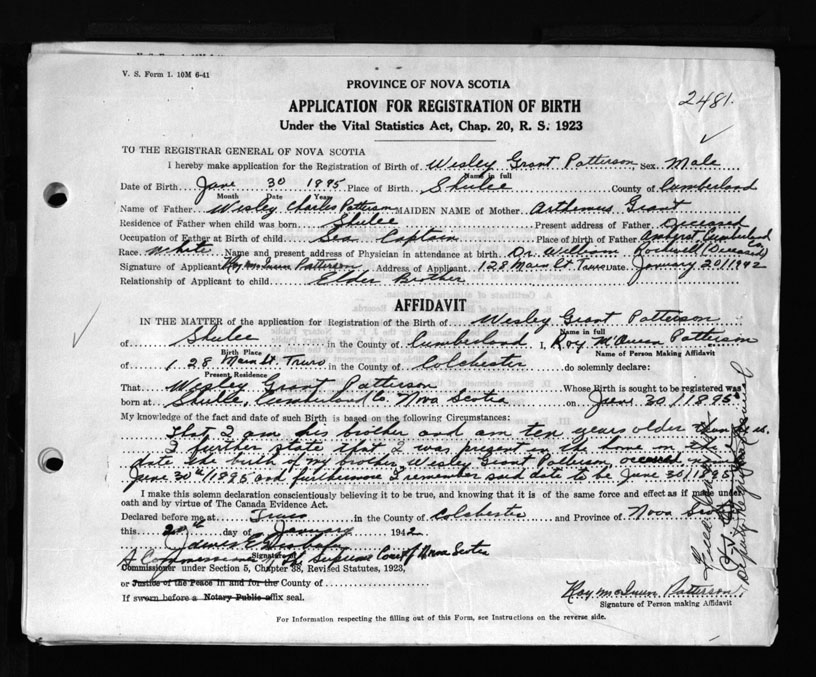 V. S. Form 1. 10M 6-41
2481.
PROVINCE OF NOVA SCOTIA
APPLICATION FOR REGISTRATION OF BIRTH
Under the Vital Statistics Act, Chap. 20, R. S. 1923
TO THE REGISTRAR GENERAL OF NOVA SCOTIA
I hereby make application for the Registration of Birth of Wesley Grant Patterson Sex Male
Name in full
Date of Birth June 30 1895 Place of Birth Shulee County of Cumberland
Month Date Year
Name of Father Wesley Charles Patterson MAIDEN NAME of Mother Arthemus Grant
Residence of Father when child was born Shulee Present address of Father Deceased
Occupation of Father at Birth of child Sea Captain Place of birth of Father Amherst, Cumberland Co.
Race White Name and present address of Physician in attendance at birth Dr. William Rockwell (Deceased)
Signature of Applicant Roy McQueen Patterson Address of Applicant 128 Main St. Truro date January 20/1942
Relationship of Applicant to child Elder Brother
AFFIDAVIT
IN THE MATTER of the application for Registration of the Birth of Wesley Grant Patterson
Name in full
of Shulee in the County of Cumberland I, Roy McQueen Patterson
Birth Place Name of Person Making Affidavit
of 128 Main St. Truro in the County of Colchester do solemnly declare:
Present Residence
That Wesley Grant Patterson Whose Birth is sought to be registered was
born at Shulee, Cumberland Co. Nova Scotia on June 30/1895
My knowledge of the fact and date of such Birth is based on the following Circumstances:
That I am his brother and am ten years older than he is.
I further state that I was present in the home on the
date the birth of my brother Wesley Grant Patterson occurred
June 30th/1895 and furthermore I remember said date to be June 30/1895
I make this solemn declaration conscientiously believing it to be true, and knowing that it is of the same force and effect as if made under
oath and by virtue of The Canada Evidence Act.
Declared before me at Truro in the County of Colchester and Province of Nova Scotia
this 20th day of January 1942
James E.
Signature
A Commissioner of the Supreme Court of Nova Scotia
Commissioner under Section 5, Chapter 38, Revised Statutes, 1923,
or Justice of the Peace in and for the County of
If sworn before a Notary Public affix seal.
Roy McQueen Patterson
Signature of Person making Affidavit
For Information respecting the filling out of this Form, see Instructions on the reverse side.
Deputy Registrar General